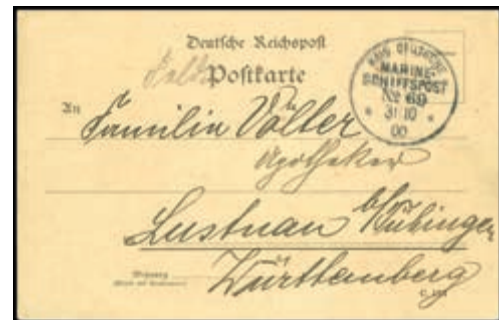 Deutsche Reichspost
Feldpostkarte
KAIS. DEUTSCHE
MARINE-
SCHIFFSPOST
No 69
31 10
00
An
Familie Völter
Apotheker
Lustnau b/Tübingen
Württemberg
Wohnung